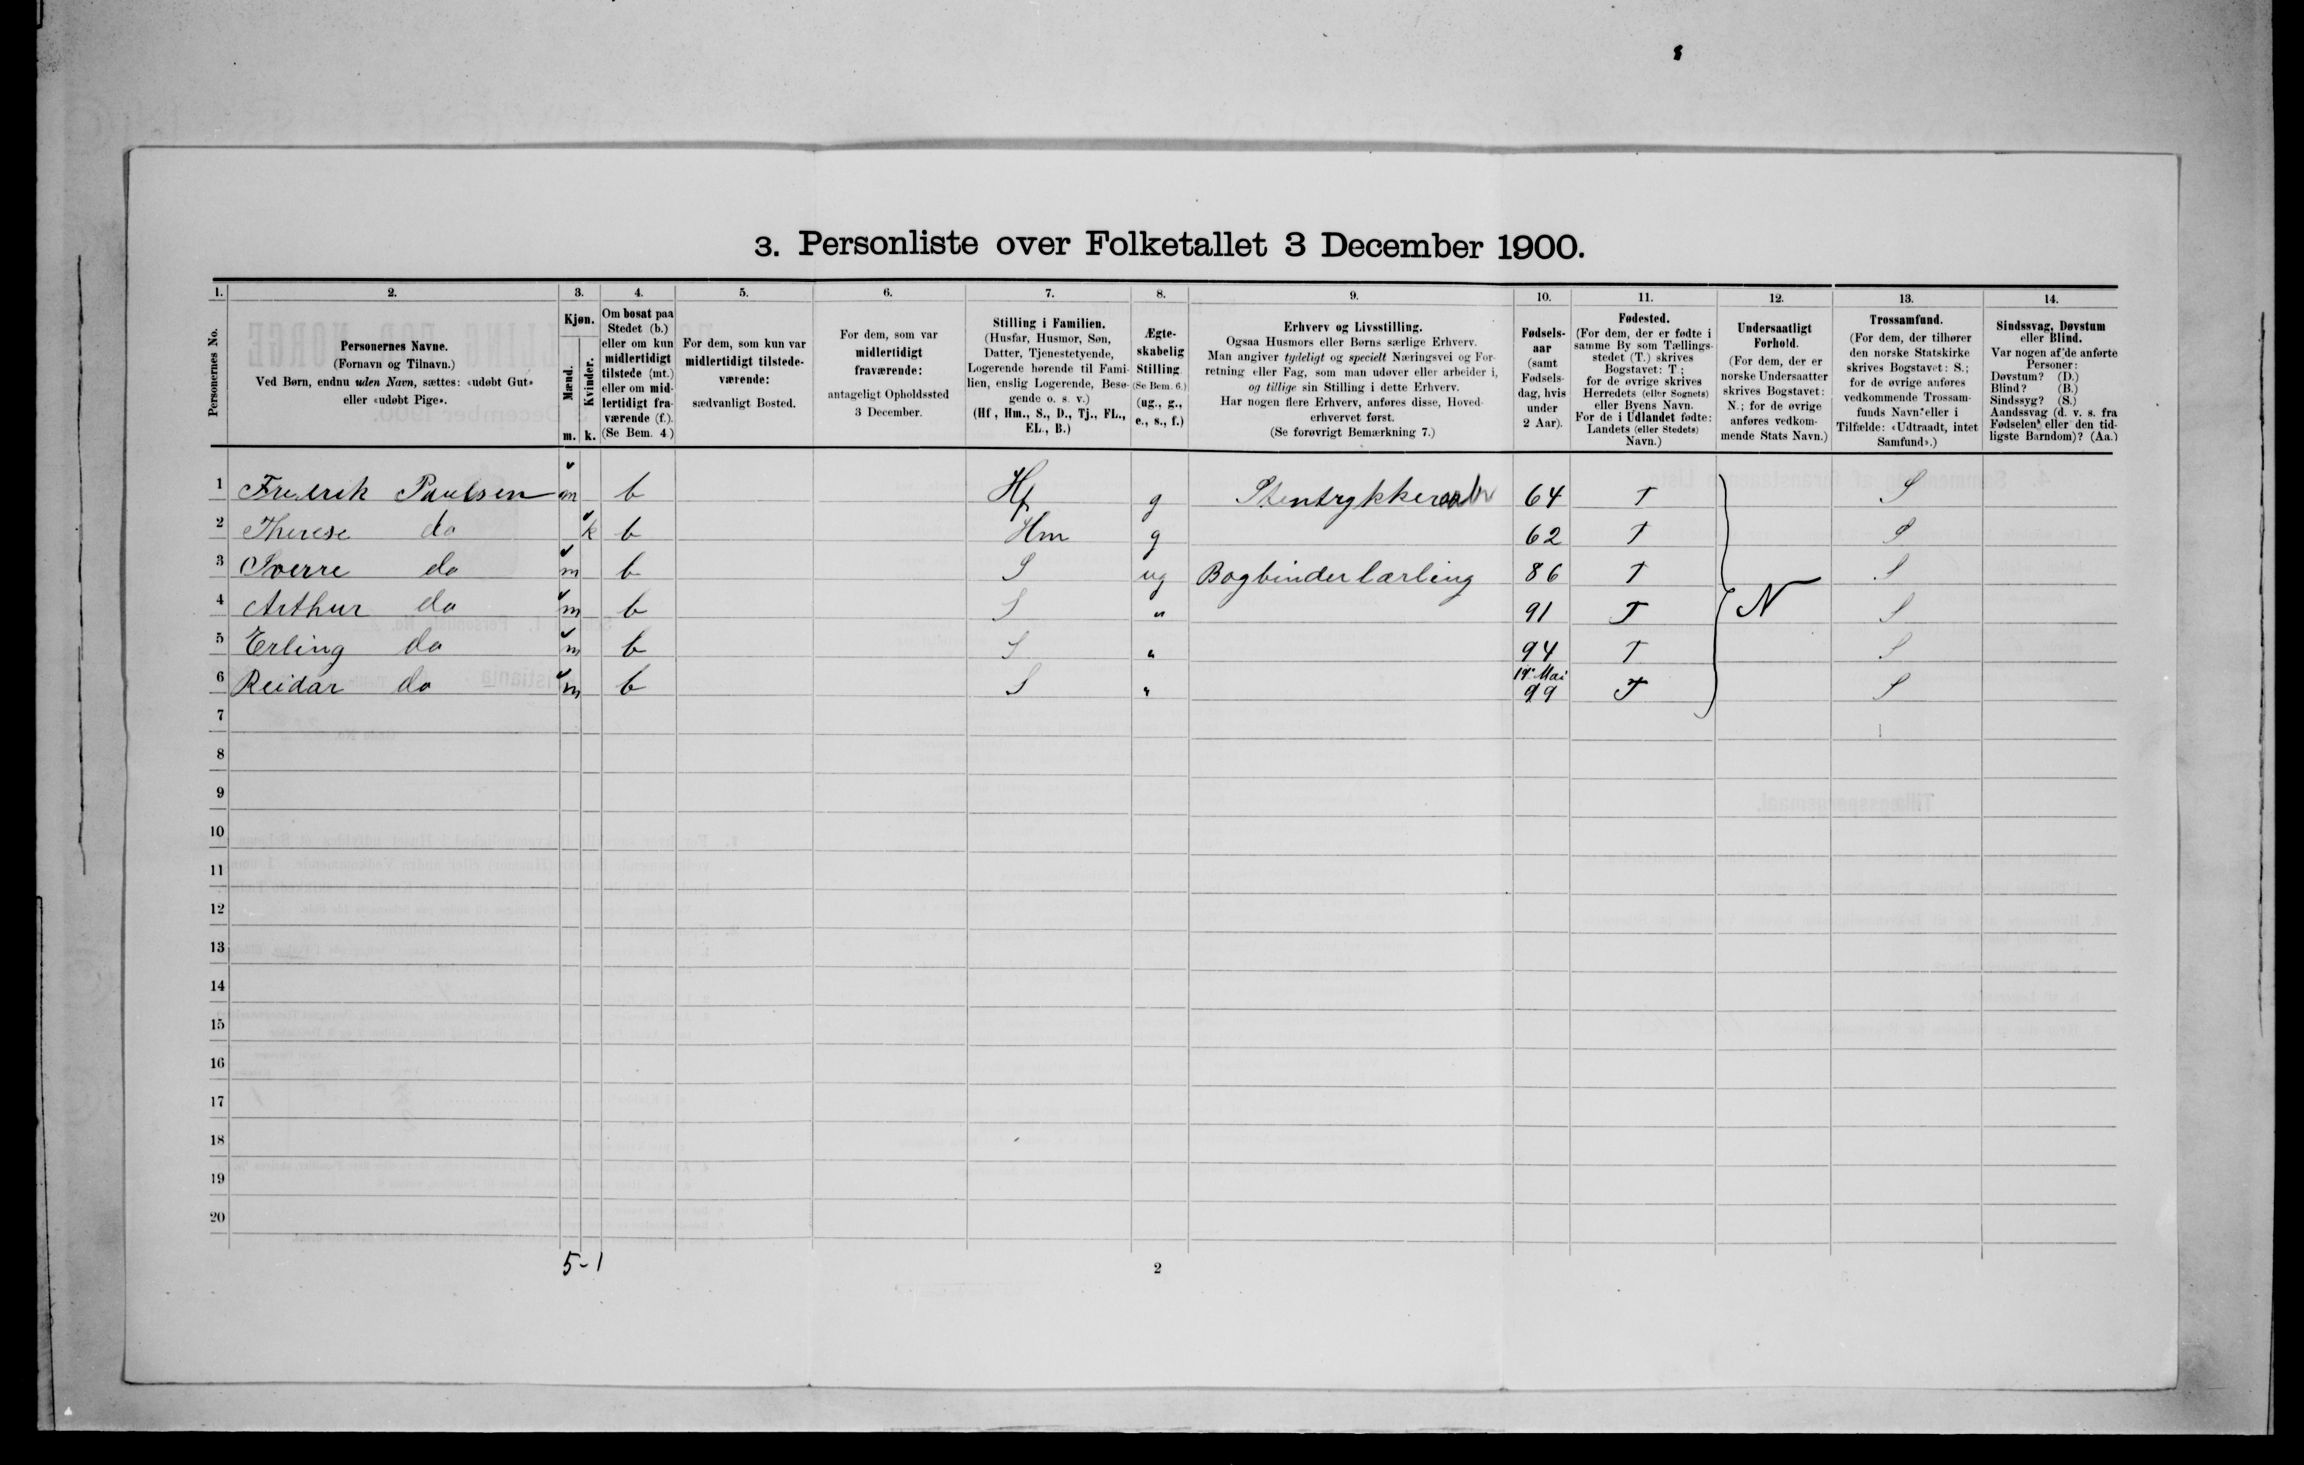 3. Personliste over Folketallet 3 December 1900.
1. 2. 3. 4. 5. 6. 7. 8. 9. 10. 11. 12. 13. 14.
Personernes No.
Personernes Navne.
(Fornavn og Tilnavn.)
Ved Børn, endnu uden Navn, sættes: «udøbt Gut»
eller «udøbt Pige».
Kjøn.
Mænd.
Kvinder.
m. k.
Om bosat paa
Stedet (b.)
eller om kun
midlertidigt
tilstede (mt.)
eller om mid-
lertidigt fra-
værende (f.).
(Se Bem. 4.)
For dem, som kun var
midlertidigt tilstede-
værende:
sædvanligt Bosted.
For dem, som var
midlertidigt
fraværende:
antageligt Opholdssted
3 December.
Stilling i Familien.
(Husfar, Husmor, Søn,
Datter, Tjenestetyende,
Logerende hørende til Fami-
lien, enslig Logerende, Besø-
gende o. s. v.)
(Hf, Hm., S., D., Tj., FL.,
EL., B.)
Ægte-
skabelig
Stilling.
(Se Bem. 6.)
(ug., g.,
e., s., f.)
Erhverv og Livsstilling.
Ogsaa Husmors eller Børns særlige Erhverv.
Man angiver tydeligt og specielt Næringsvei og For-
retning eller Fag, som man udøver eller arbeider i,
og tillige sin Stilling i dette Erhverv.
Har nogen flere Erhverv, anføres disse, Hoved-
erhvervet først.
(Se forøvrigt Bemærkning 7.)
Fødsels-
aar
(samt
Fødsels-
dag, hvis
under
2 Aar).
Fødested.
(For dem, der er fødte i
samme By som Tællings-
stedet (T.) skrives
Bogstavet: T;
for de øvrige skrives
Herredets (eller Sognets)
eller Byens Navn.
For de i Udlandet fødte:
Landets (eller Stedets)
Navn.)
Undersaatligt
Forhold.
(For dem, der er
norske Undersaatter
skrives Bogstavet:
N.; for de øvrige
anføres vedkom-
mende Stats Navn.)
Trossamfund.
(For dem, der tilhører
den norske Statskirke
skrives Bogstavet: S.;
for de øvrige anføres
vedkommende Trossam-
funds Navn eller i
Tilfælde: «Udtraadt, intet
Samfund».)
Sindssvag, Døvstum
eller Blind.
Var nogen af de anførte
Personer:
Døvstum? (D.)
Blind? (B.)
Sindssyg? (S.)
Aandssvag (d. v. s. fra
Fødselen eller den tid-
ligste Barndom)? (Aa.)
1 Fredrik Paulsen m b Hf g Stentrykkerarb 64 T S
2 Therese do k b Hm g 62 T S
3 Sverre do m b S ug Bogbinderlærling 86 T S
4 Arthur do m b S " 91 T N S
5 Erling do m b S " 94 T S
6 Reidar do m b S " 19 Mai 99 T S
7
8
9
10
11
12
13
14
15
16
17
18
19
20
5-1
2